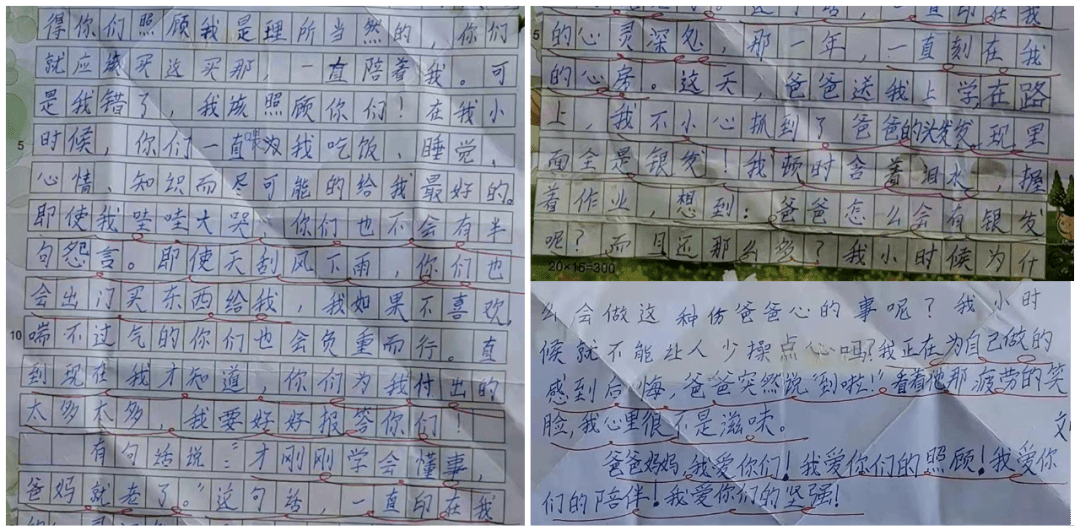 得你们照顾我是理所当然的，你们
就应该买这买那，一直陪着我。可
是我错了，我该照顾你们！在我小
5
时候，你们一直喂为我吃饭、睡觉、
心情、知识而尽可能的给我最好的。
即使我哇哇大哭，你们也不会有半
句怨言。即使天刮风下雨，你们也
会出门买东西给我，我如果不喜欢，
10
喘不过气的你们也会负重而行。直
到现在我才知道，你们为我付出的
太多太多，我要好好报答你们！
有句话说：“才刚刚学会懂事，
爸妈就老了。”这句话，一直印在我
的心灵深处，那一年，一直刻在我
5
的心房。这天，爸爸送我上学在路
上，我不小心抓到了爸爸的头发发现里
面全是银发！我顿时含着泪水，握
着作业，想到：爸爸怎么会有银发
呢？而且还那么多？我小时候为什
20×15=300
么会做这种伤爸爸心的事呢？我小时
候就不能让人少操点心吗？我正在为自己做的
感到后悔，爸爸突然说“到啦！”看着他那疲劳的笑
脸，我心里很不是滋味。
爸爸妈妈，我爱你们！我爱你们的照顾！我爱你
们的陪伴！我爱你们的坚强！